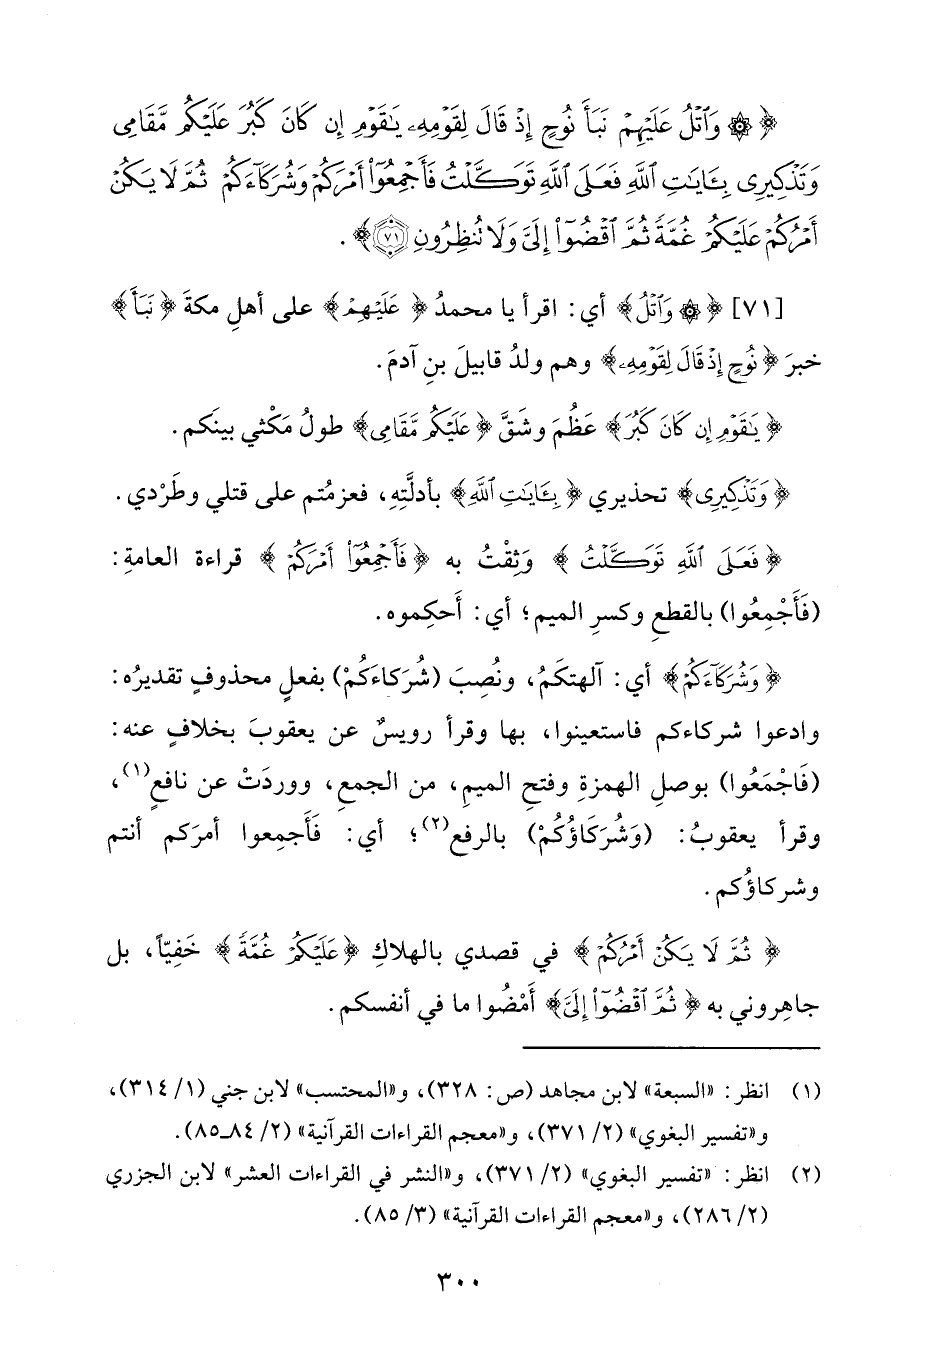 ﴿ ۞ وَٱتۡلُ عَلَيۡهِمۡ نَبَأَ نُوحٍ إِذۡ قَالَ لِقَوۡمِهِۦ يَٰقَوۡمِ إِن كَانَ كَبُرَ عَلَيۡكُم مَّقَامِى
وَتَذۡكِيرِى بِـَٔايَٰتِ ٱللَّهِ فَعَلَى ٱللَّهِ تَوَكَّلۡتُ فَأَجۡمِعُوٓاْ أَمۡرَكُمۡ وَشُرَكَآءَكُمۡ ثُمَّ لَا يَكُنۡ
أَمۡرُكُمۡ عَلَيۡكُمۡ غُمَّةٗ ثُمَّ ٱقۡضُوٓاْ إِلَىَّ وَلَا تُنظِرُونِ ٧١﴾ .
[٧١] ﴿ ۞ وَٱتۡلُ﴾ أي: اقرأ يا محمدُ ﴿ عَلَيۡهِمۡ﴾ على أهلِ مكةَ ﴿ نَبَأَ ﴾
خبرَ ﴿ نُوحٍ إِذۡ قَالَ لِقَوۡمِهِۦ﴾ وهم ولدُ قابيلَ بنِ آدمَ.
﴿ يَٰقَوۡمِ إِن كَانَ كَبُرَ﴾ عَظُمَ وشَقَّ ﴿ عَلَيۡكُم مَّقَامِى﴾ طولُ مَكْثي بينَكم.
﴿ وَتَذۡكِيرِى﴾ تحذيري ﴿ بِـَٔايَٰتِ ٱللَّهِ﴾ بأدلَّتِهِ، فعزمْتم على قتلي وطَرْدي.
﴿ فَعَلَى ٱللَّهِ تَوَكَّلۡتُ ﴾ وَثِقْتُ به ﴿ فَأَجۡمِعُوٓاْ أَمۡرَكُمۡ ﴾ قراءة العامةِ:
(فَأَجْمِعُوا) بالقطعِ وكسرِ الميم؛ أي: أَحكِموه.
﴿ وَشُرَكَآءَكُمۡ﴾ أي: آلهتكَمُ، ونُصِبَ (شُرَكاءَكُمْ) بفعلٍ محذوفٍ تقديرُه:
وادعوا شركاءكم فاستعينوا، بها وقرأ رويسٌ عن يعقوبَ بخلافٍ عنه:
(فَاجْمَعُوا) بوصلِ الهمزةِ وفتحِ الميمِ، من الجمعِ، ووردَتْ عن نافعٍ(١)،
وقرأ يعقوبُ: (وَشُرَكَاؤُكُمْ) بالرفع(٢)؛ أي: فَأَجمِعوا أمرَكم أنتم
وشركاؤُكم.
﴿ ثُمَّ لَا يَكُنۡ أَمۡرُكُمۡ ﴾ في قصدي بالهلاكِ ﴿عَلَيۡكُمۡ غُمَّةٗ ﴾ خَفِيّاً، بل
جاهِروني به ﴿ ثُمَّ ٱقۡضُوٓاْ إِلَىَّ﴾ أَمْضُوا ما في أنفسكم.
(١) انظر: «السبعة» لابن مجاهد (ص: ٣٢٨)، و«المحتسب» لابن جني (١/ ٣١٤)،
و«تفسير البغوي» (٢/ ٣٧١)، و«معجم القراءات القرآنية» (٢/ ٨٤ـ٨٥).
(٢) انظر: «تفسير البغوي» (٢/ ٣٧١)، و«النشر في القراءات العشر» لابن الجزري
(٢/ ٢٨٦)، و«معجم القراءات القرآنية» (٣/ ٨٥).
٣٠٠